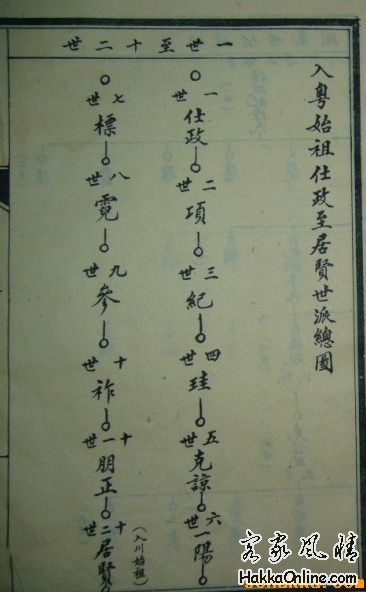 一世至十二世
入粵始祖仕政至居賢世派總圖
一世 仕政 二世 項 三世 紀 四世 珪 五世 克諒 六世 一陽
七世 標 八世 霓 九世 參 十世 祚 十一世 朋正 十二世 居賢
(入川始祖)
客家風情
HakkaOnline.com